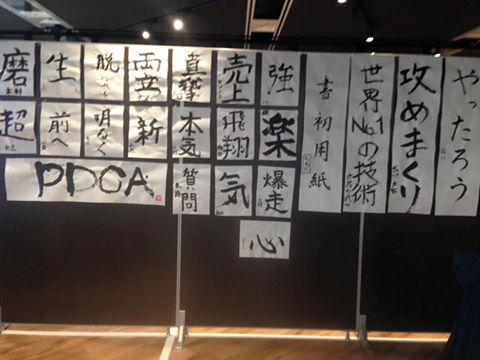 やったろう
攻めまくり
世界No.1の技術
書初用紙
強
楽
爆走
売上
飛翔
気
真摯
本気
質問
両立
新
脱
明なく
生
前へ
磨
超
PDCA
心